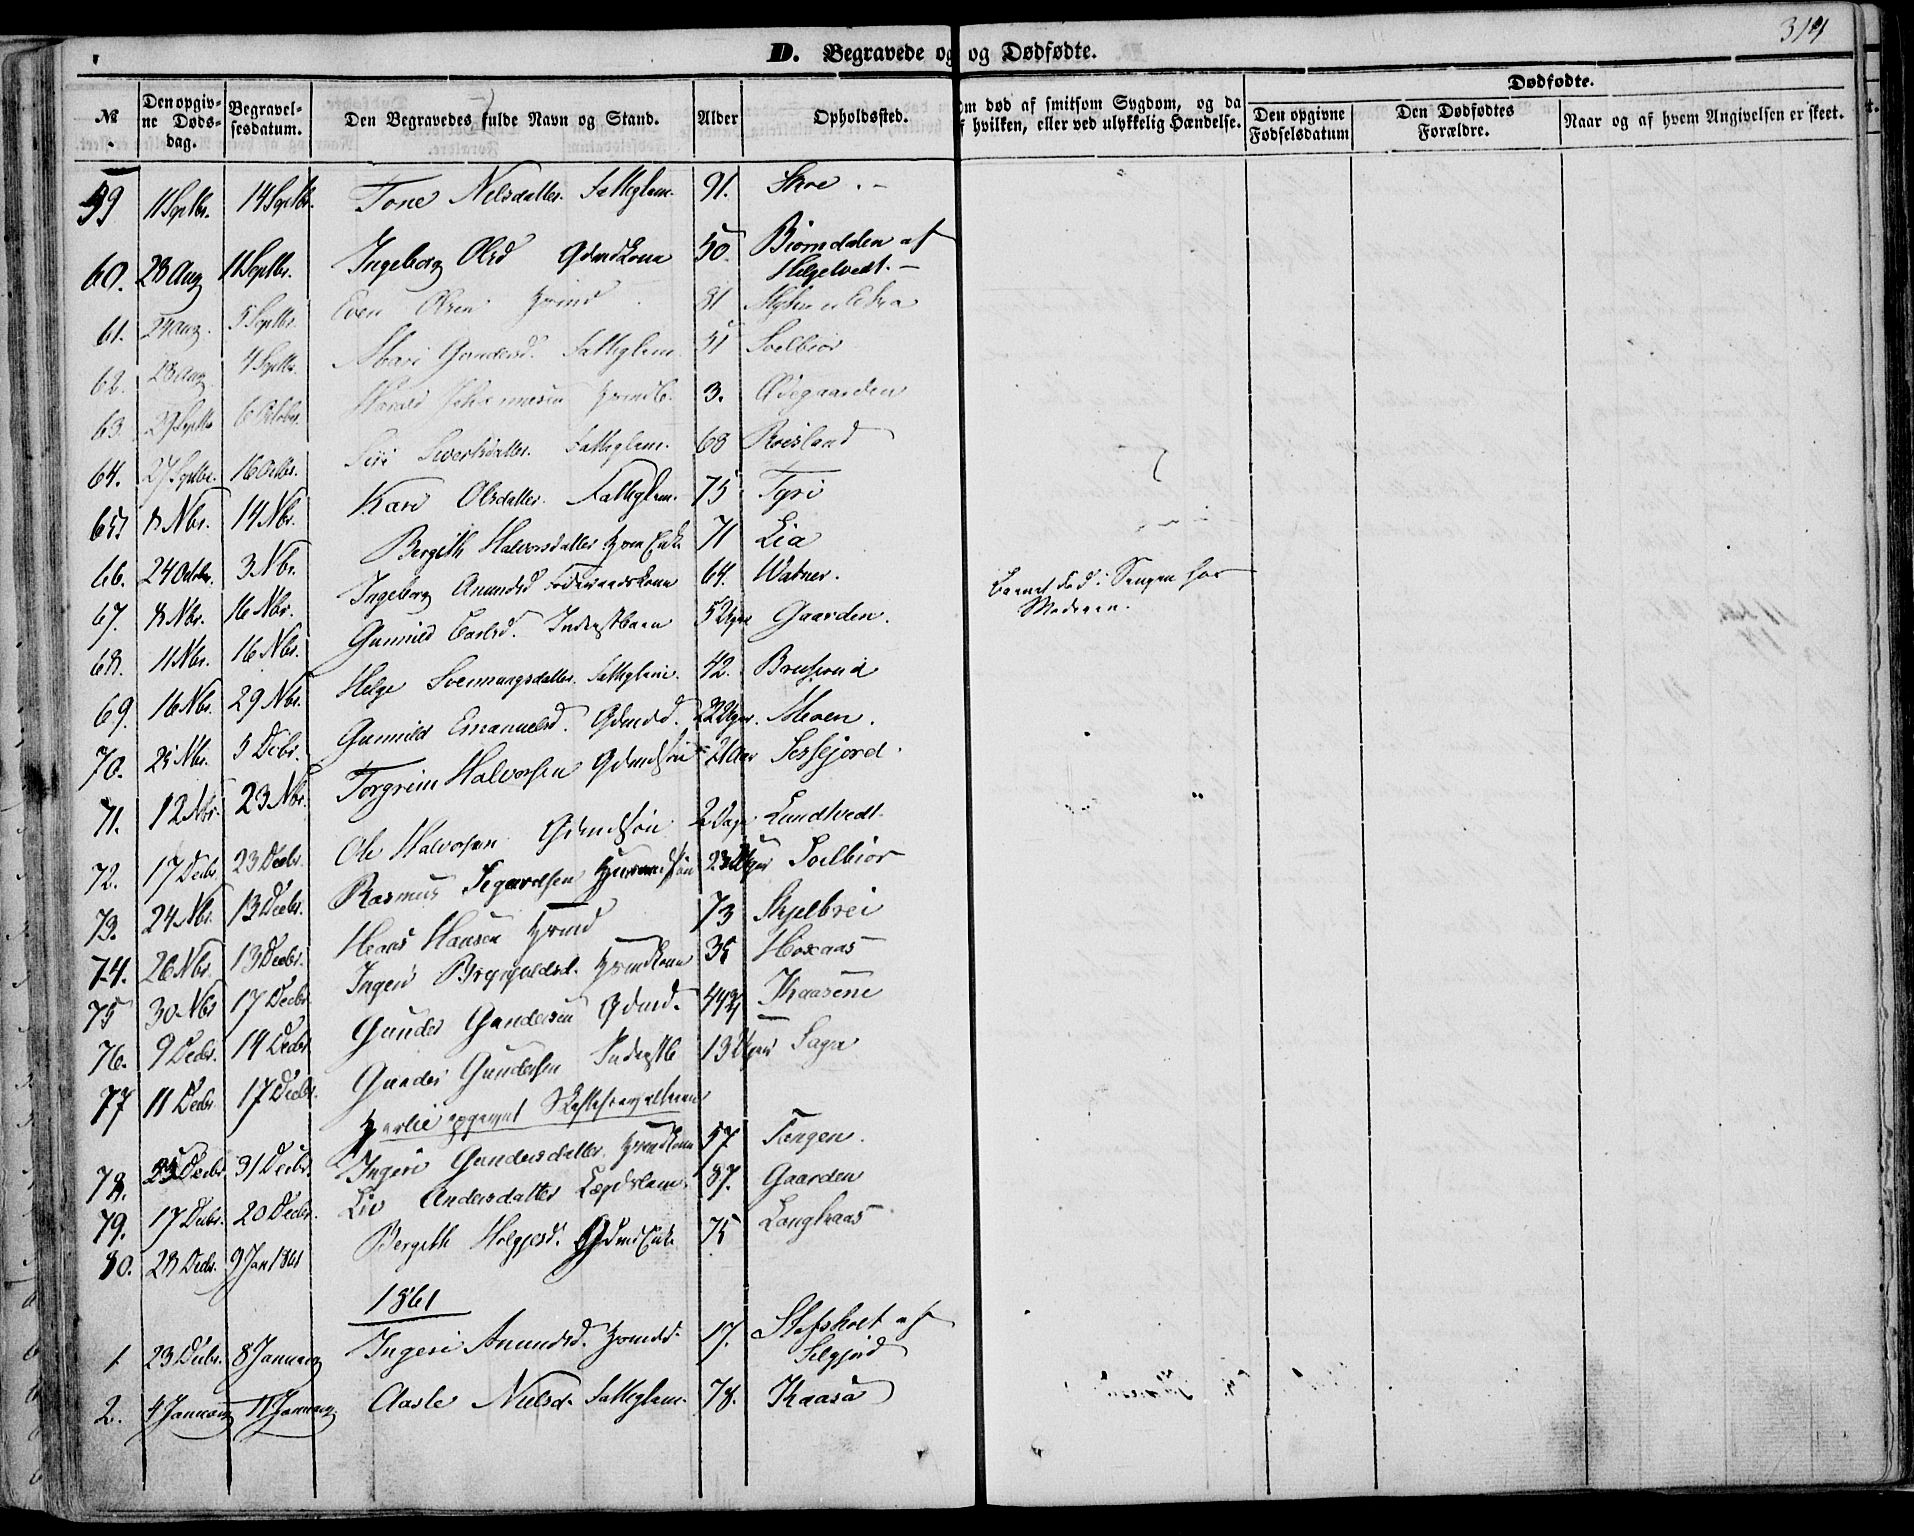 314
D. Begravede og og Dødfødte.
№ Den opgivne Dødsdag. Begravelsesdatum. Den Begravedes fulde Navn og Stand. Alder Opholdssted. Om død af smitsom Sygdom, og da af hvilken, eller ved ulykkelig Hændelse. Dødfødte. Den opgivne Fødselsdatum Den Dødfødtes Forældre. Naar og af hvem Angivelsen er skeet.
59 11 Septbr. 14 Septbr. Tone Nelsdatter Fatteglem. 91. Skoe.
60. 28 Aug 11 Septbr. Ingeborg Olsd Gdmdkone 50. Biorndalen af
Helgetvedt.
61. 24 Aug. 5 Septbr. Even Olsen Hmnd 81
62. 28 Aug 4 Septbr. Mari Gundersd. Fatteglem. 51 Soelbior
63 29 Septbr 6 October. 3. Ødegaarden
64. 27 Septbr. 16 Octbr. Siri Sivertsdatter. Fatteglem. 68 Roisland
65 8 Nbr. 14 Nbr. Kari Olsdatter. Fatteglem. 75 Tyri
66. 24 Octobr. 3 Nbr. Bergith Halvorsdatter Hmn Enke 71 Lia
67. 8 Nbr. 16 Nbr. Ingeborg Amundsd Foderaadskone 64. Watner.
68. 11 Nbr. 16 Nbr. Gunnild Carlsd. Inderstbarn 5 Uger Gaarden. Barnet død i Sengen hos
Moderen.
69. 16 Nbr. 29 Nbr. Helge Svennungsdatter. Fatteglem. 42. Brusund
70. 25 Nbr. 5 Debr. Gunnild Emanuelsd. Gdmdd. 22 Uger. Moen.
71. 12 Nbr. 23 Nbr. Torgrim Halvorsen Gdmdsøn 21 Aar Sessejord.
72. 17 Debr. 23 Decbr. Ole Halvorsen Gdmdsøn 2 Dage Lundtvedt.
73. 24 Nbr. 13 Decbr. Rasmus Segurdsen Huusmandsøn 23 Uger Soelbior
74. 26 Nbr. 13 Decbr. Hans Hansen Hmnd 73 Skjelbrei
75 30 Nbr 17 Decbr Ingeri Bryngelsd. Hmndkone 35 Hoxaas
76. 9 Decbr. 14 Decbr Gunder Gundersen Gdmd. 44 Kaasene
77 11 Decbr. 17 Decbr. Gunder Gundersen Inderstb 13 Uger Saga
78. Decbr. 31 Decbr. Ingeri Gundersdatter. Hmndkone 57 Tangen.
79. 17 Decbr. 20 Decbr. Liv Andersdatter Lægdslem. 87. Gaarden
80. 28 Decbr. 9 Jan 1861 Bergith Helgjesd. Gdmd Enke 75 Langkaas
1861
1. 23 Decbr. 8 January Ingeri Amundsd. Hmndd. 17. Stafsholt af
Selgjord
2. 4 January 11 January. Aasle Nielsd. Fatteglem. 78. Kaasa